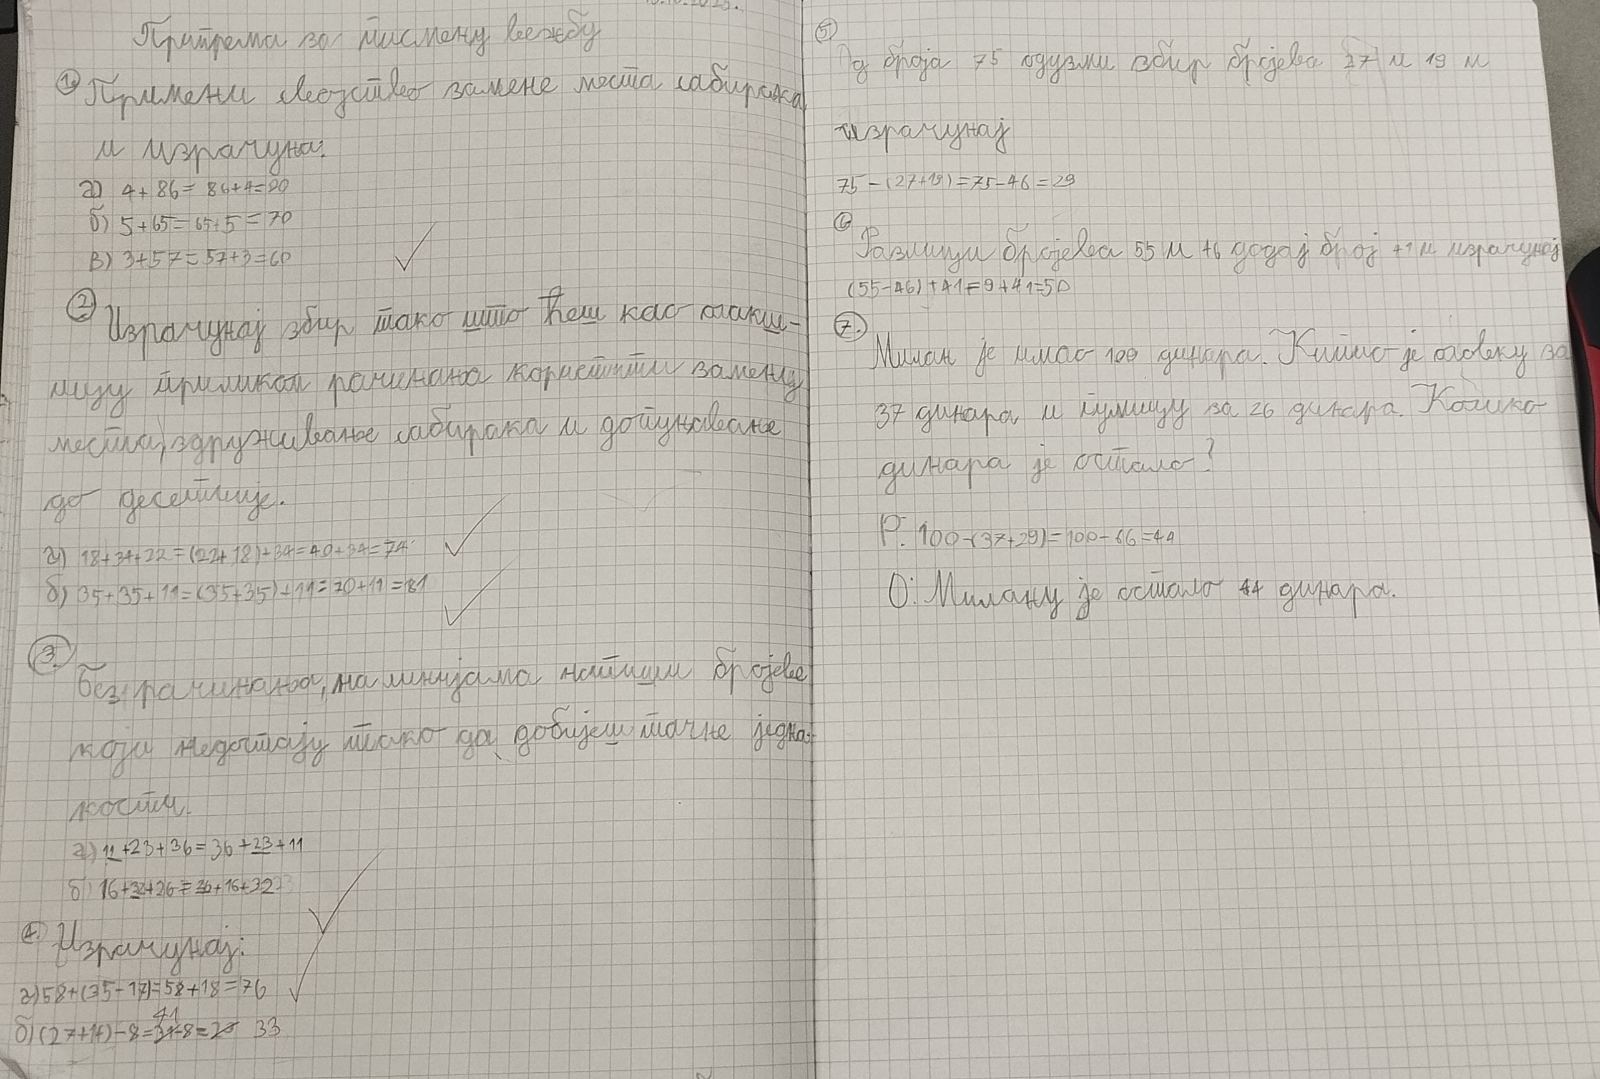 Припрема за писмену вежбу
1. Примени својство замене места сабирака
и израчунај:
а) 4+86=86+4=90
б) 5+65=65+5=70
в) 3+57=57+3=60
2. Израчунај збир тако што ћеш као олакши-
цу приликом рачунана користити замену
места, здруживање сабирака и допуњавање
до десетице.
а) 18+34+22=(22+18)+34=40+34=74
б) 35+35+11=(35+35)+11=70+11=81
3. Без рачунања, на линијама напиши бројеве
који недостају тако да добијеш тачне једна-
кости.
а) 11+23+36=36+23+11
б) 16+32+26=26+16+32
4. Израчунај:
а) 58+(35-17)=58+18=76
б) (27+14)-8= 41 -8= 33
5
Од броја 75 одузми збир бројева 27 и 19 и
израчунај
75-(27+19)=75-46=29
6
Разлици бројева 55 и 46 додај број 41 и израчунај
(55-46)+41=9+41=50
7. Милан је имао 100 динара. Купио је оловку за
37 динара и гумицу за 26 динара. Колико
динара је остало?
Р: 100-(37+29)=100-66=44
О: Милану је остало 44 динара.